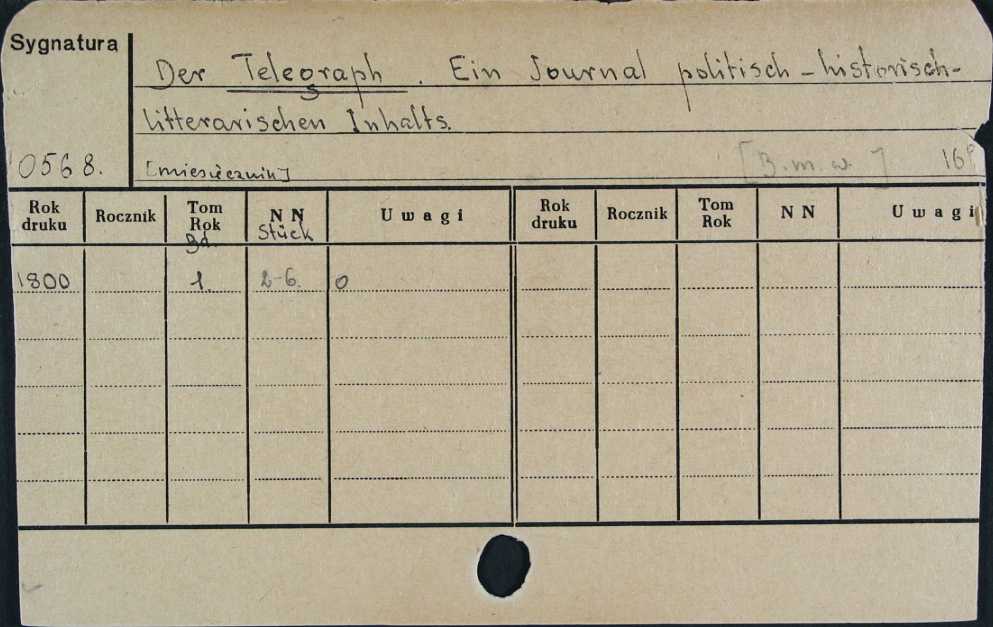 Sygnatura
Der Telegraph. Ein Journal politisch-historisch-
litterarischen Inhalts.
0568. [miesięcznik] [B.m.w.] 16°
Rok druku Rocznik Tom Rok N N U w a g i Rok druku Rocznik Tom Rok N N U w a g i
Bd. Stück
1800 1. 2-6. 0